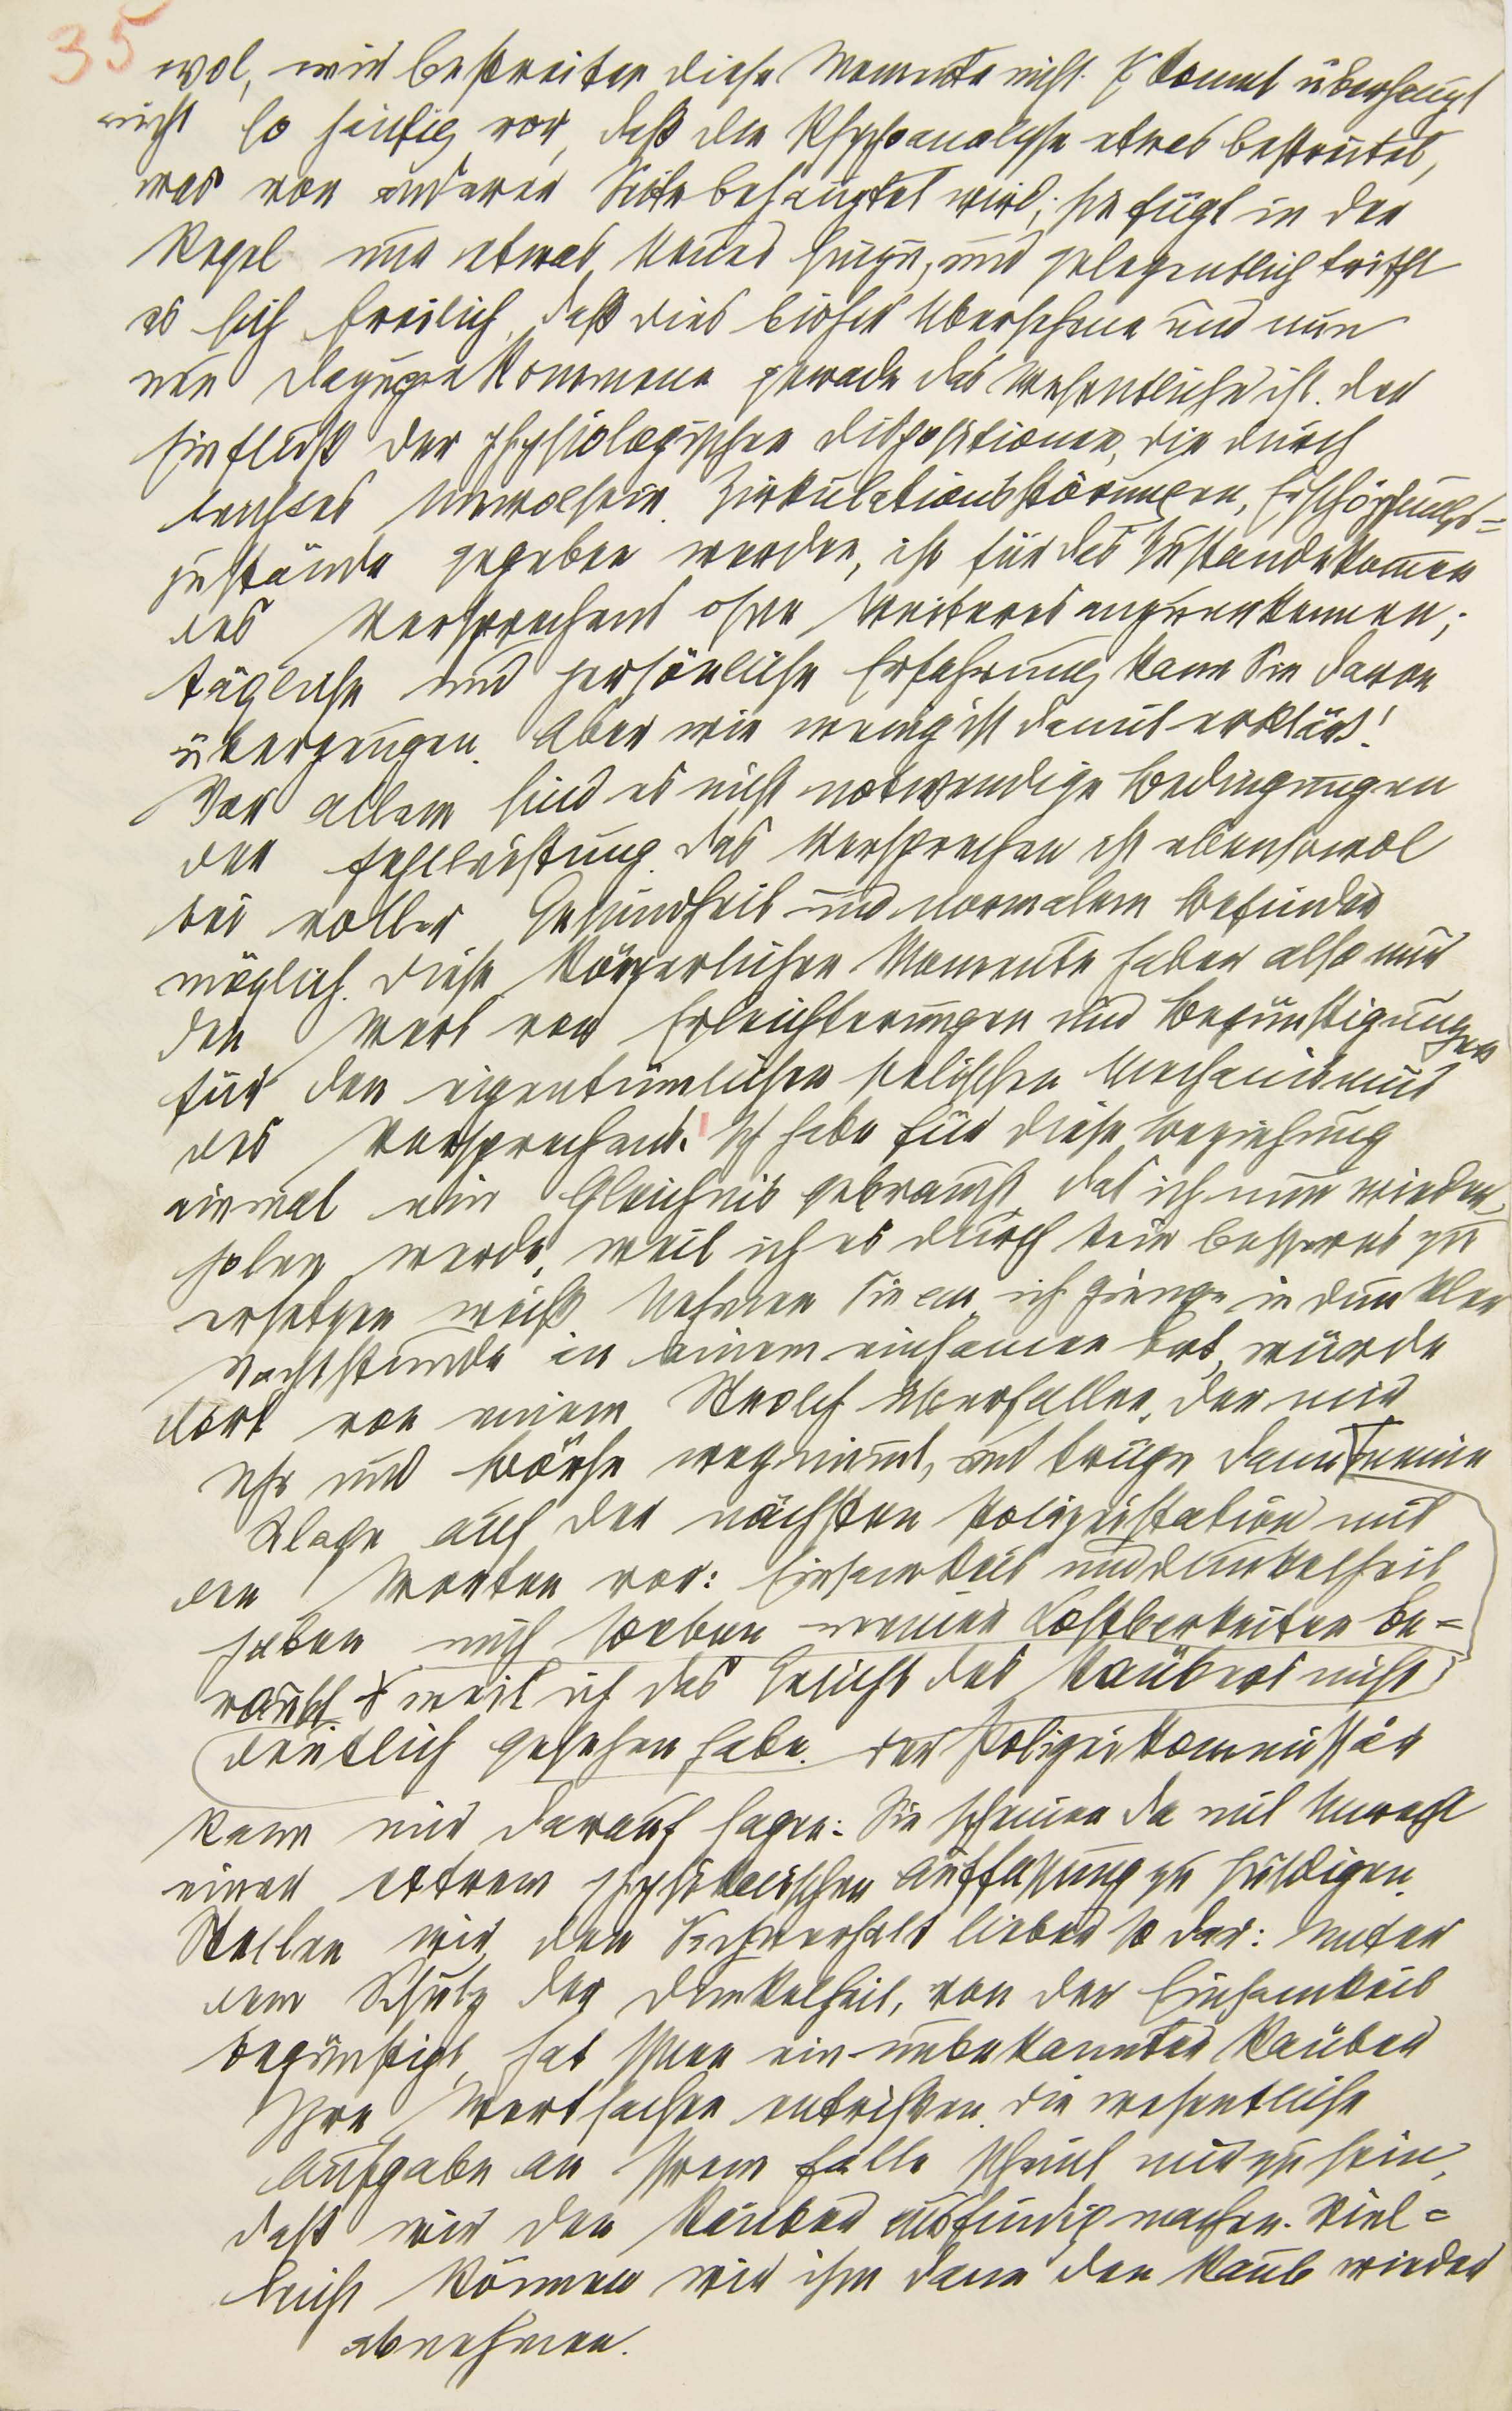 35
wol, wir bestreiten diese Momente nicht. Es kommt überhaupt
nicht so häufig vor, daß die Psychoanalyse etwas bestreitet,
was von anderer Seite behauptet wird; sie fügt in der
Regel nur etwas Neues hinzu, und gelegentlich trifft
es sich freilich, daß dies bisher Übersehene und nun
neu Dazugekommene gerade das Wesentliche ist. Der
Einfluß der physiologischen Dispositionen, die durch
leichtes Unwolsein, Zirkulationsstörungen, Erschöpfungs=
zustände gegeben werden, ist für das Zustandekom̄en
des Versprechens ohne Weiteres anzuerkennen;
tägliche und persönliche Erfahrung kann Sie davon
überzeugen. Aber wie wenig ist damit erklärt!
Vor allem sind es nicht notwendige Bedingungen
der Fehlleistung. Das Versprechen ist ebensowol
bei voller Gesundheit und normalem Befinden
möglich. Diese körperlichen Momente haben also nur
den Wert von Erleichterungen und Begünstigungen
für den eigentümlichen seelischen Mechanismus
des Versprechens. Ich habe für diese Beziehung
einmal ein Gleichnis gebraucht, das ich nun wieder
holen werde, weil ich es durch kein besseres zu
ersetzen weiß. Nehmen Sie an, ich ginge in dunkler
Nachtstunde an einem einsamen Ort, würde
dort von einem Strolch überfallen, der mir
Uhr und Börse wegnim̄t, und trüge dann meine
Klage auf der nächsten Polizeistation mit
den Worten vor: Einsamkeit und Dunkelheit
haben mich soeben meiner Kostbarkeiten be=
raubt weil ich das Gesicht des Räubers nicht
deutlich gesehen habe. Der Polizeikommissär
kann mir darauf sagen: Sie scheinen da mit Unrecht
einer extrem mechanistischen Auffassung zu huldigen.
Stellen wir den Sachverhalt lieber so dar: Unter
dem Schutz der Dunkelheit, von der Einsamkeit
begünstigt, hat Ihnen ein unbekannter Räuber
Ihre Wertsachen entrissen. Die wesentliche
Aufgabe an Ihrem Falle scheint mir zu sein,
daß wir den Räuber ausfindig machen. Viel=
leicht können wir ihm dann den Raub wieder
abnehmen.